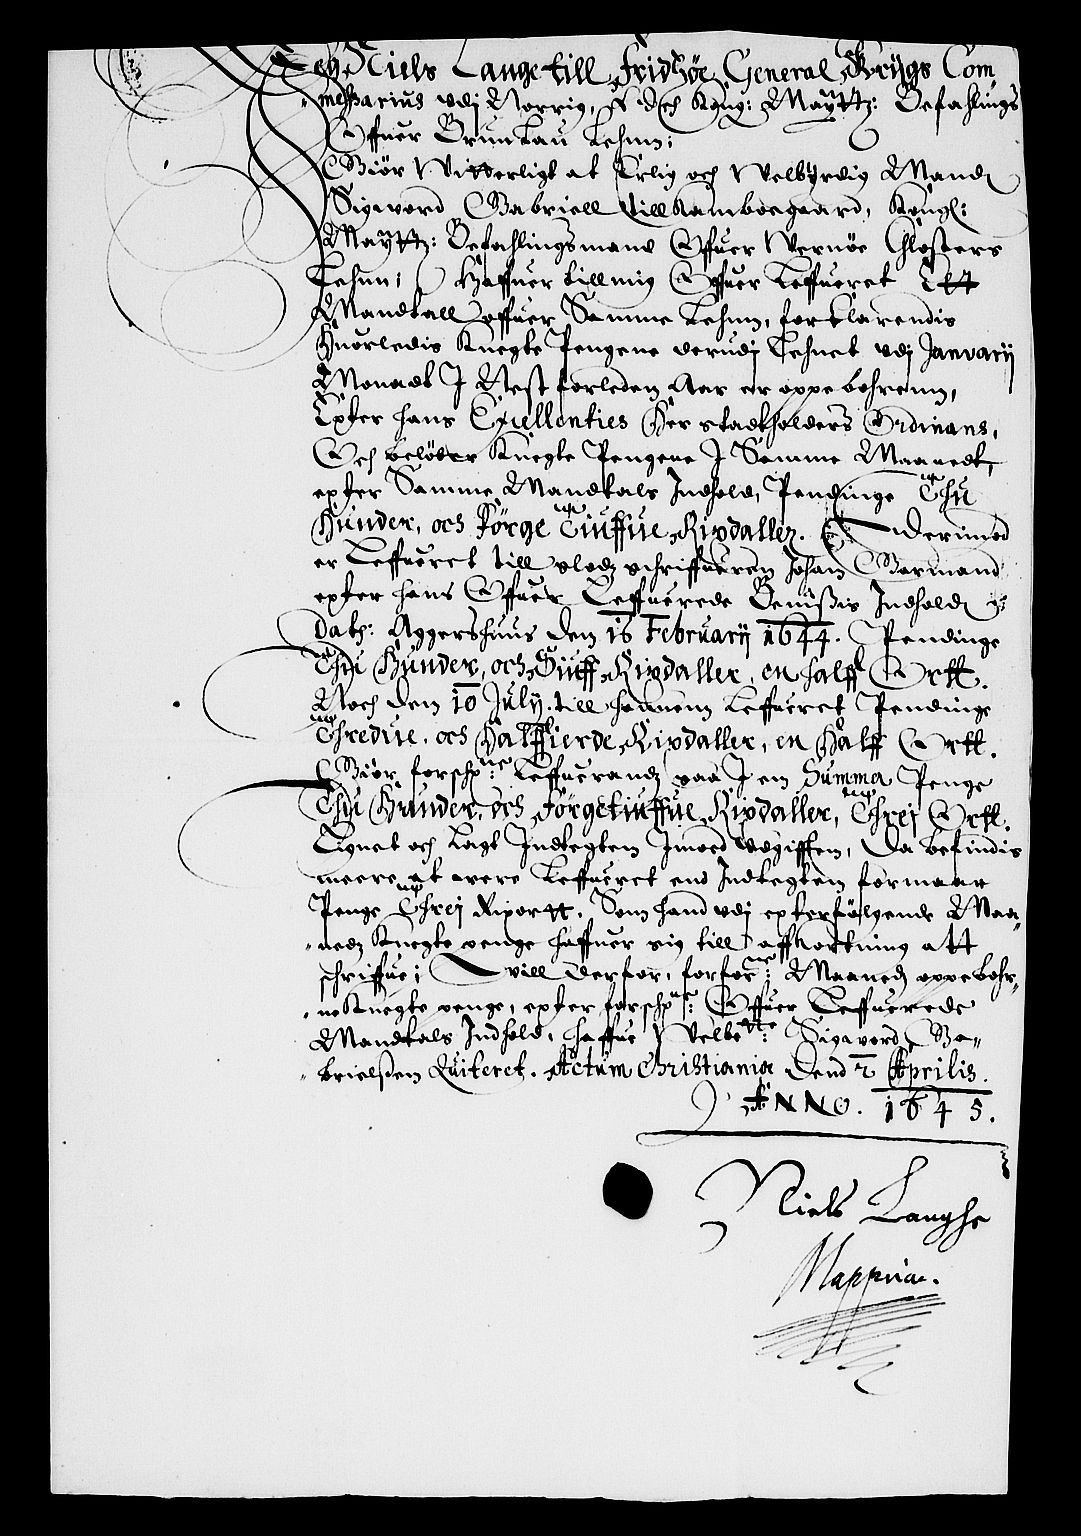 Jeg Niels Lange till Fridhøe General Krigs Com
messarius udj Norrig, och Kong: Maytt: Befahlings
Offuer Brunlau Lehnn;
Giør Witterligt at Erlig och Welbyrdig Mand
Sigword Gabriell till Kamboegaard, Kongl:
Maytt: Befahlingsmand Offuer Wernøe Closters
Lehnn; Haffuer till mig Offuer Leffueret Ett
Mandtall offuer Samme Lehnn, forklarendis
Huorledis Knegte Pengene derudj Lehnet udj Januarij
Monadt J Nest forleden Aar er oppebohrenn,
Epter hans Excellenties Her Stadtholders Ordinans,
Och beløber Knegte Pengene J Samme Maanedt,
epter Samme Mandtals Indhold, Pendinge Thu
Hunder, och Førge Tiuffue Rixdaller. Derimod
er Leffueret till slodz schriffueren Johan Garmand
epter hans Offuer Leffuerede Beuißis Indhold
Dat: Aggershuus den 16 February 1644. Pendinge
Thu Hunder, och Siuff Rixdaller, en halff Ortt.
Noch den 10 July. till hannem Leffueret Pendinge
Thrediue, och Halffierde Rixdaller, en Halff Ortt.
Giør forschne: Leffuerandz paa J en Summa Penge
Thu Hunder, och Førgetiuffue Rixdaller, Threj Ortt.
Lignet och Lagt Indtegten Jmod Udgifften, Da befindis
meere at were Leffueret end Indtegten formaar
Penge Threj Rixortt. Som hand udj epterfølgende Maa
nedz Knegte penge haffuer sig till affkortning att
schriffue; Saa vill derfor, forforne: Maanedz oppebohr
ne Knegte penge, epter forschne: Offuer Leffuerede
Mandtals Indhold, haffue Welbte: Sigword Ga
brielßen Quiteret. Actum Christiania Dend 2 Aprilis.
ANNO. 1645.
Niels Langhe
Mappria.